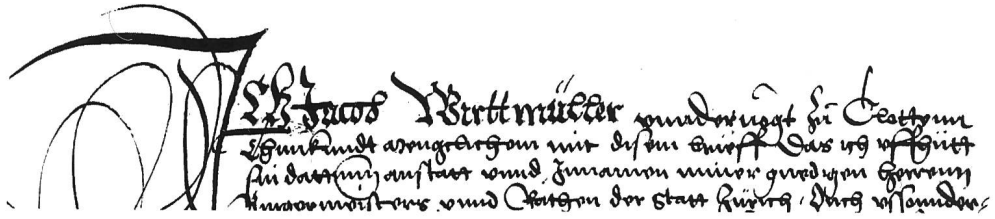 ICH Jacob Wirttmüller vnnderuogt zů Clottenn
Thun kundt Mengclichem mit disem brieff Das ich vff hütt
sin dattum anstatt vnnd Innamen miner gnedigen herrenn
Burgermeisters vnnd Rathen der Statt Zürich, Ouch vssonnder,